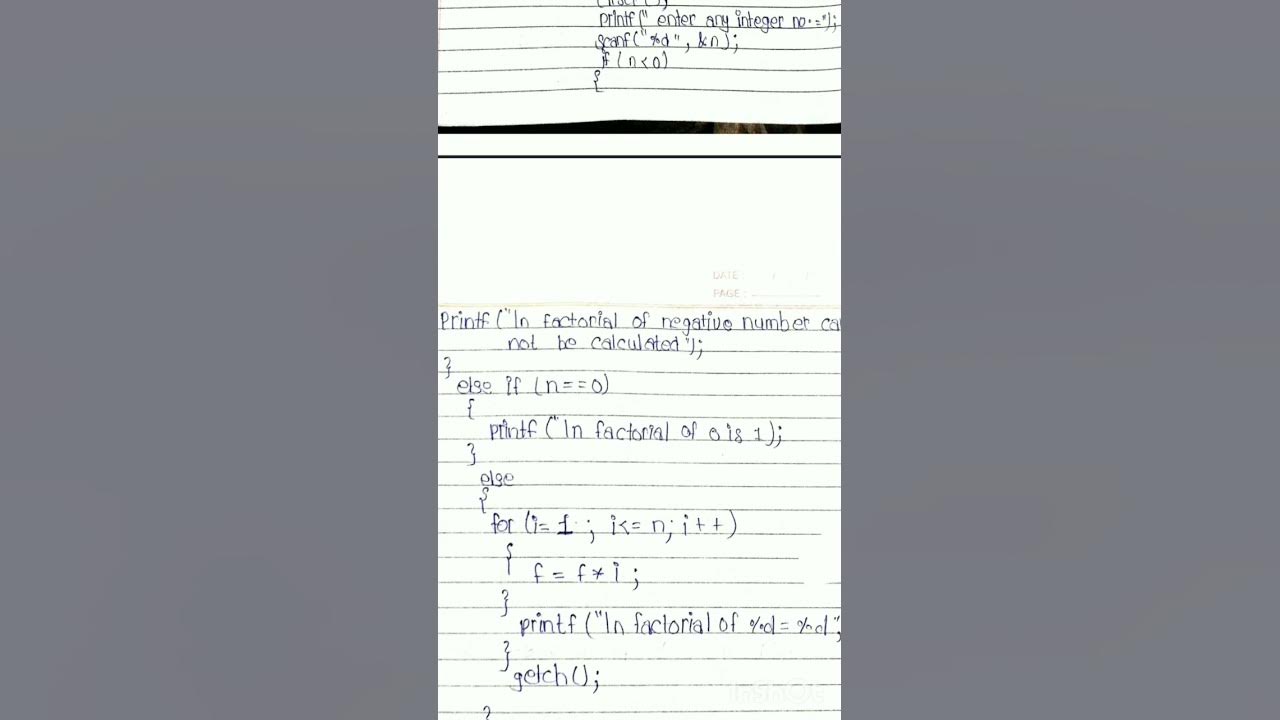 clrscr();
printf(" enter any integer no.=");
scanf("%d", &n);
if (n<0)
{
DATE : / /
PAGE :
Printf ("\n factorial of negative number ca
not be calculated");
}
else if (n==0)
{
printf ("\n factorial of 0 is 1);
}
else
{
for (i=1 ; i<= n; i++)
{
f = f*i ;
}
printf ("\n factorial of %d = %d",
}
getch();
}